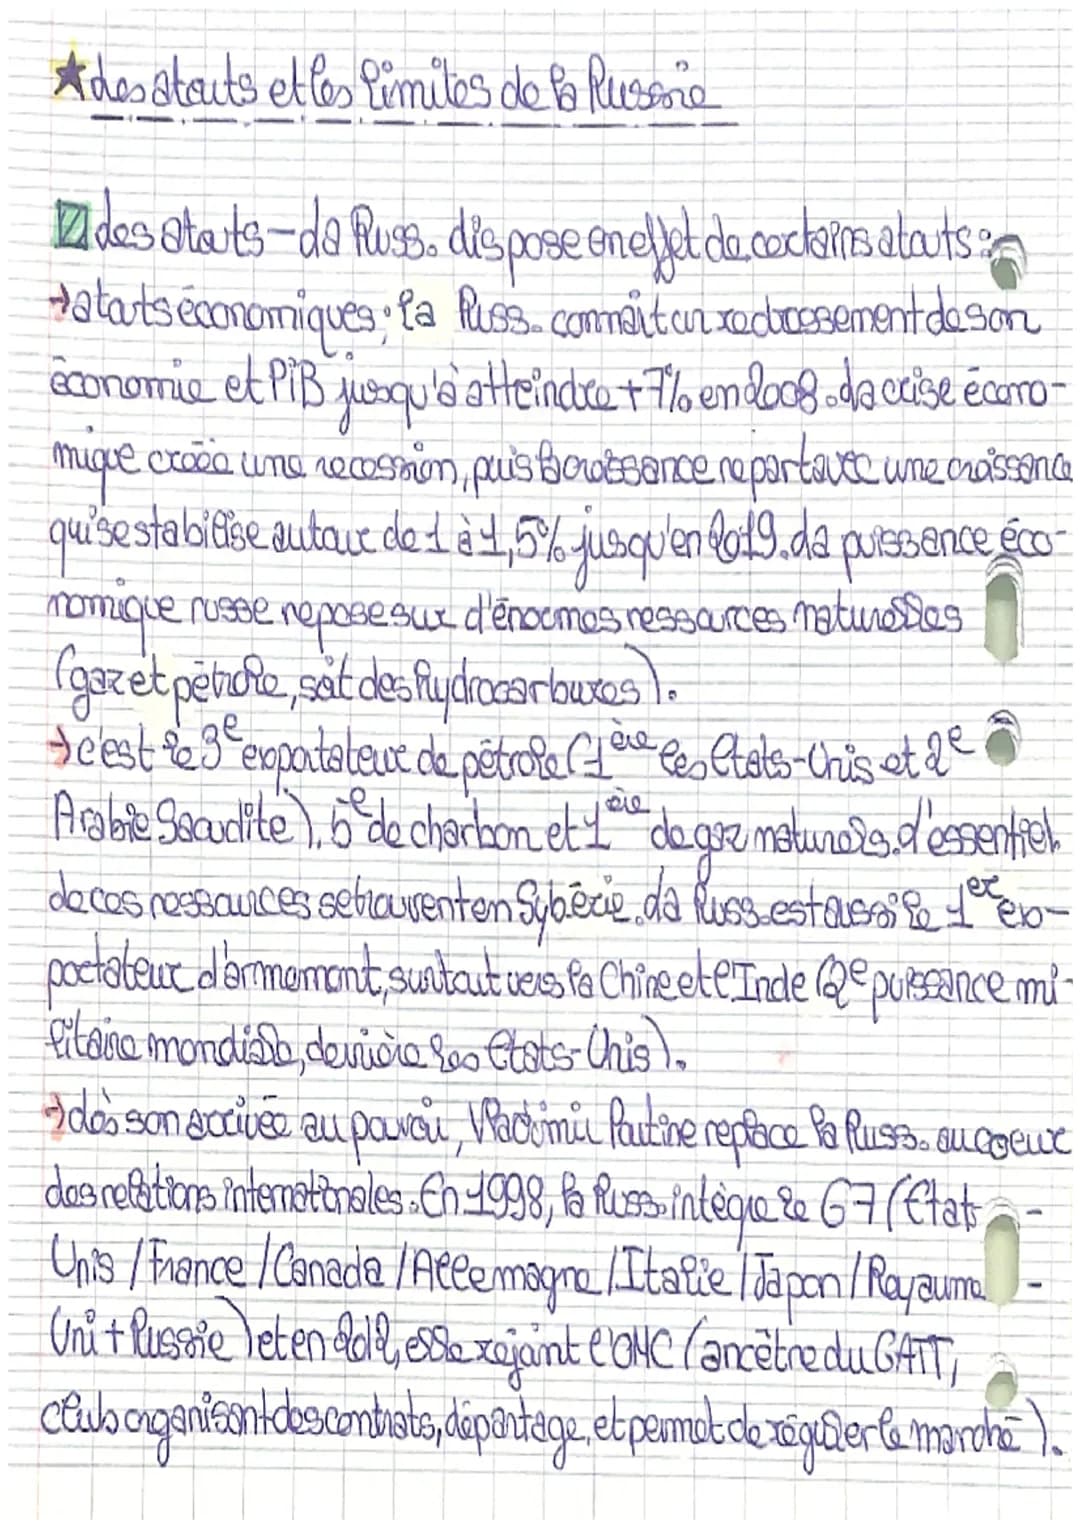 ★ Les atouts et les limites de la Russie
des atouts - La Russ. dispose en effet de certains atouts :
→ atouts économiques : la Russ. connaît un redressement de son
économie et PiB jusqu'à atteindre +7% en 2008. La crise écono-
mique créée une recession, puis la croissance repart avec une croissance
qui se stabilise autour de 1 à 1,5% jusqu'en 2019. La puissance éco-
nomique russe repose sur d'énormes ressources naturelles
(gaz et pétrole, soit des hydrocarbures).
→ c'est le 3e exportateur de pétrole (1ère les Etats-Unis et 2e
Arabie Saoudite), 5e de charbon et 1ère de gaz naturels. L'essentiel
de ces ressources se trouvent en Sybérie. La Russ. est aussi le 1er ex-
portateur d'armement, surtout vers la Chine et l'Inde (2e puissance mi-
litaire mondiale, derrière les Etats-Unis).
→ dès son arrivée au pouvoir, Vladimir Poutine replace la Russ. au coeur
des relations internationales. En 1998, la Russ. intègre le G7 (Etats-
Unis / France / Canada / Allemagne / Italie / Japon / Royaume-
Uni + Russie) et en 2012, elle rejoint l'OMC (ancêtre du GATT,
club organisant des contrats, départage, et permet de réguler le marché).